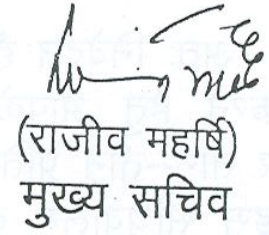 (राजीव महर्षि)
मुख्य सचिव